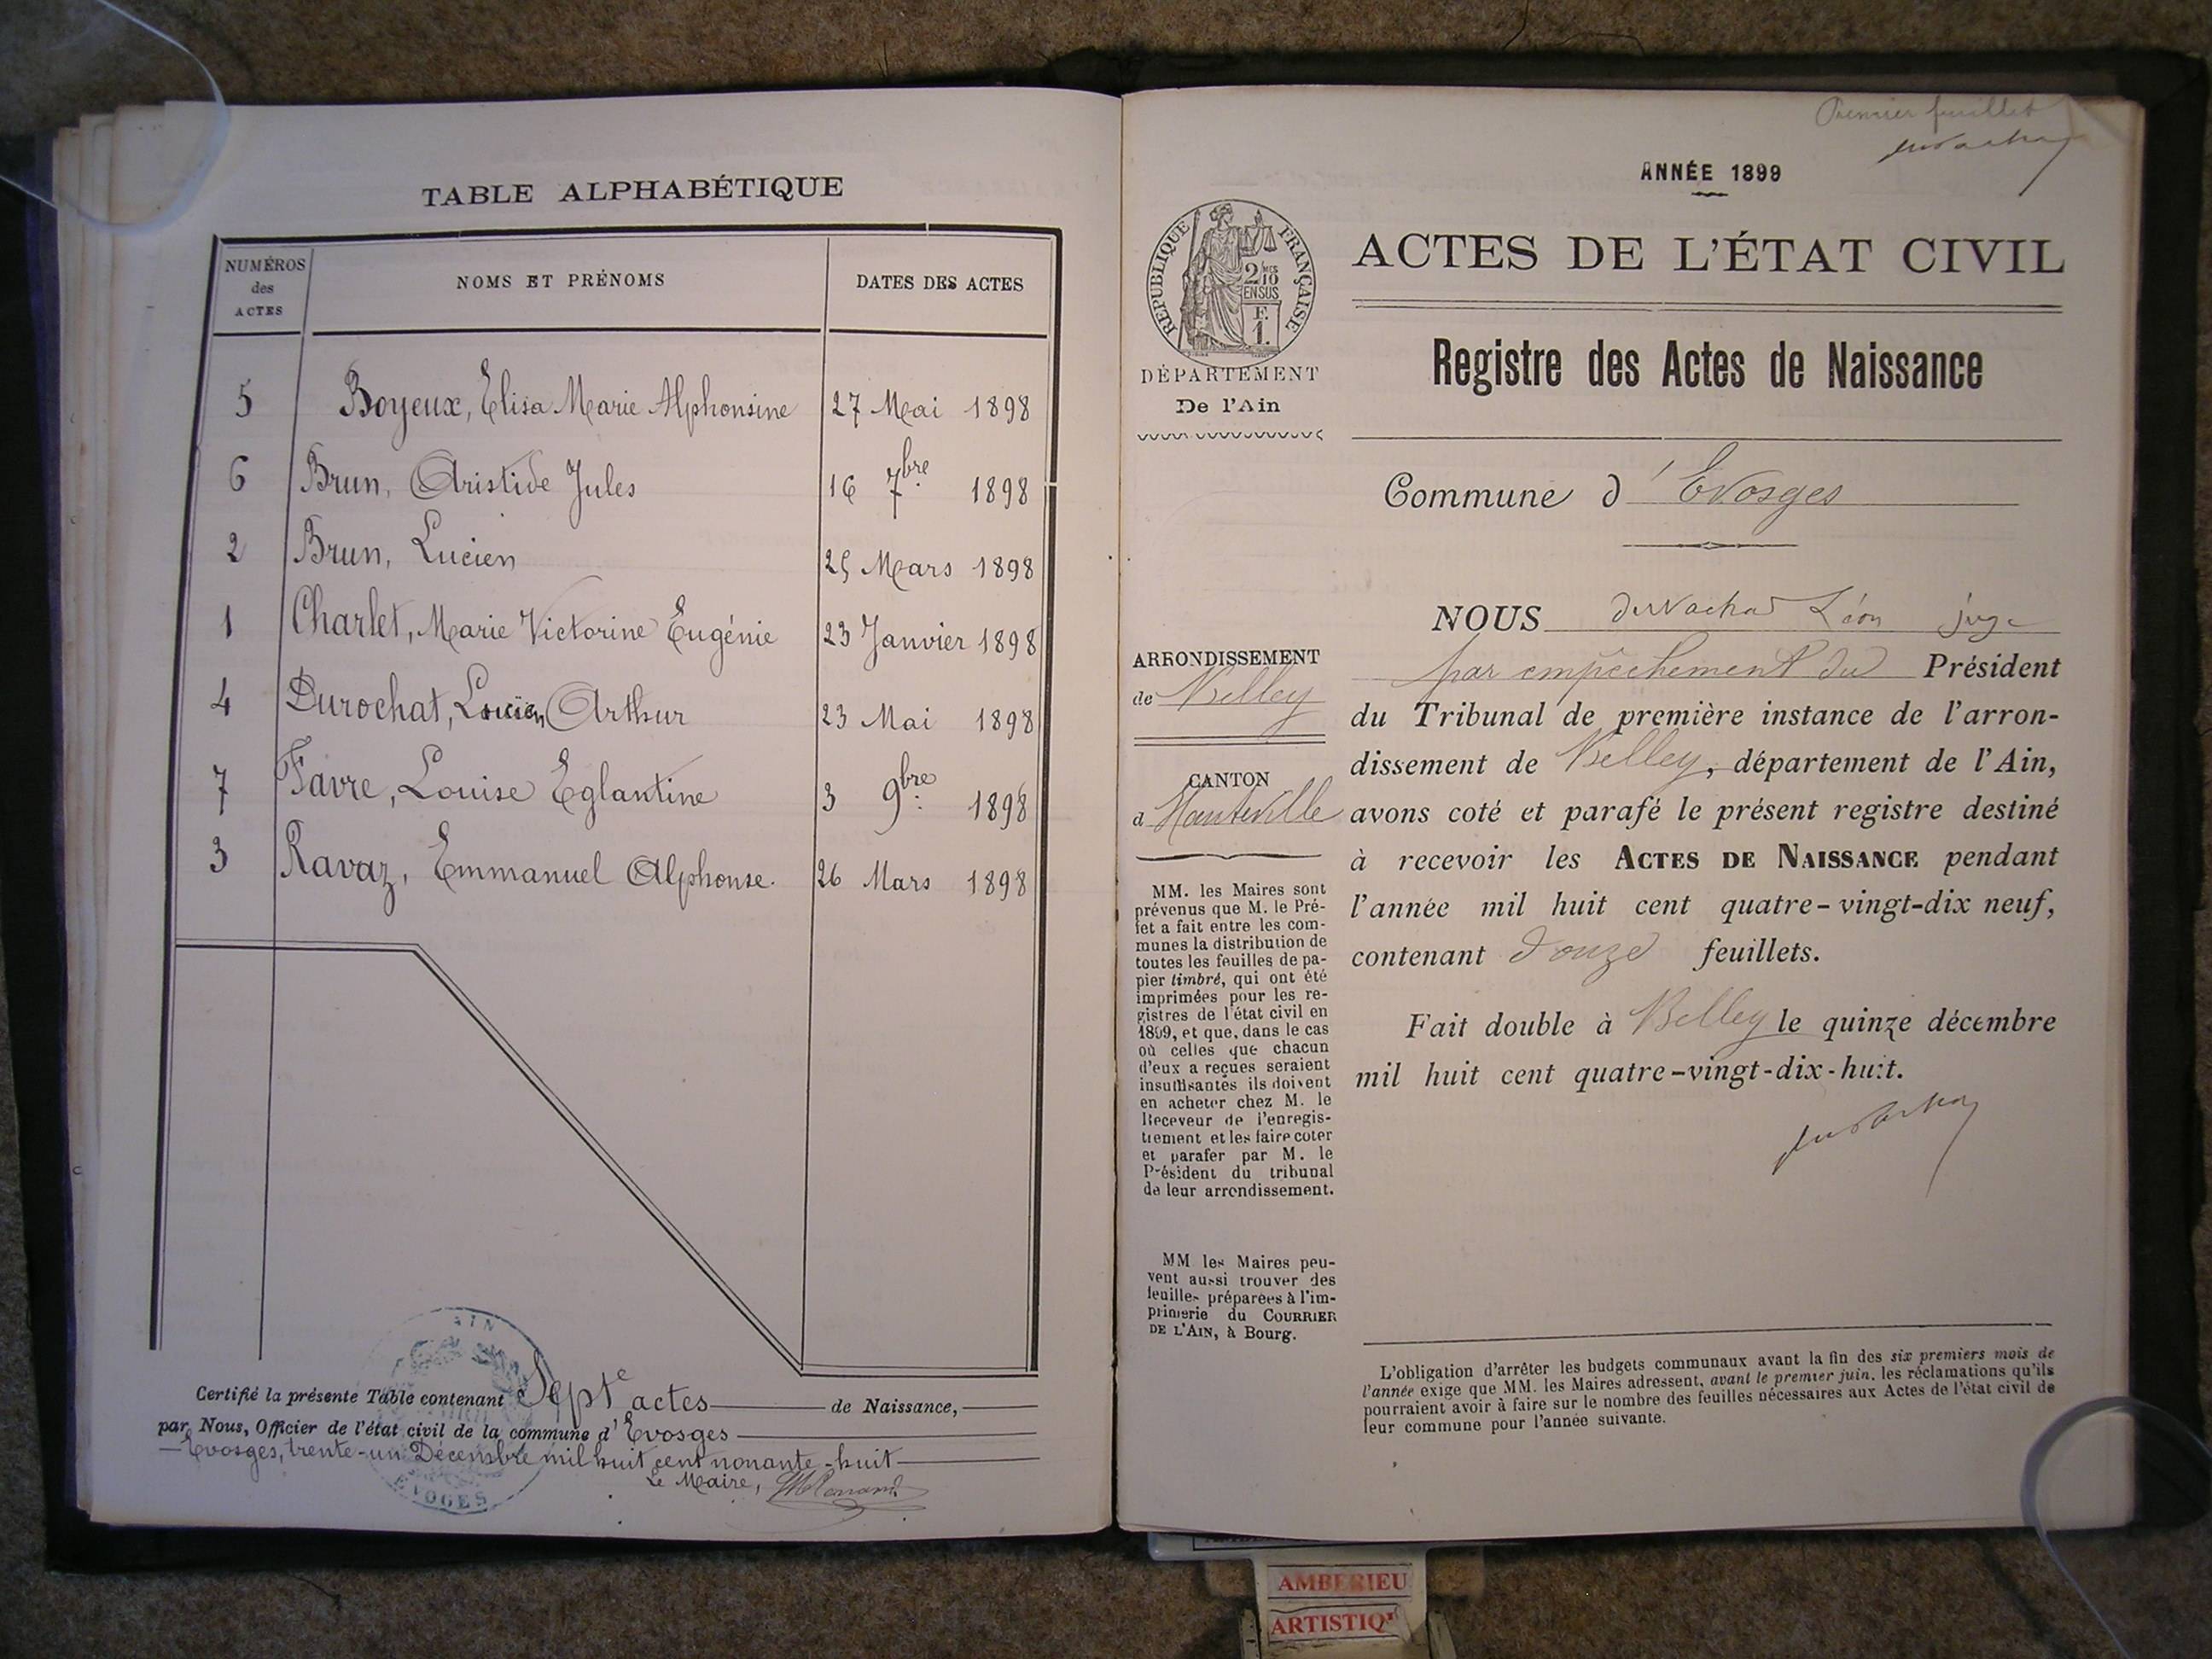 TABLE ALPHABÉTIQUE
NUMÉROS des ACTES
NOMS ET PRÉNOMS
DATES DES ACTES
5 Boyeux, Elisa Marie Alphonsine 27 Mai 1898
6 Brun, Aristide Jules 16 7bre 1898
2 Brun, Lucien 25 Mars 1898
1 Charlet, Marie Victorine Eugénie 23 Janvier 1898
4 Durochat, Lucien Arthur 23 Mai 1898
7 Favre, Louise Eglantine 3 9bre 1898
3 Ravaz, Emmanuel Alphonse. 26 Mars 1898
Certifié la présente Table contenant Sept actes de Naissance,
par Nous, Officier de l'état civil de la commune d'Evosges
Evosges, trente-un Décembre mil huit cent nonante-huit
Le Maire,
AIN
EVOGES
Premier feuillet
ANNÉE 1899
RÉPUBLIQUE FRANÇAISE
2/10 MES
EN SUS
F.
1.
DÉPARTEMENT
De l'Ain
ACTES DE L'ÉTAT CIVIL
Registre des Actes de Naissance
Commune d'Evosges
ARRONDISSEMENT
de Belley
CANTON
d Hauteville
MM. les Maires sont
prévenus que M. le Pré-
fet a fait entre les com-
munes la distribution de
toutes les feuilles de pa-
pier timbré, qui ont été
imprimées pour les re-
gistres de l'état civil en
1899, et que, dans le cas
où celles que chacun
d'eux a reçues seraient
insuffisantes ils doivent
en acheter chez M. le
Receveur de l'enregis-
trement et les faire coter
et parafer par M. le
Président du tribunal
de leur arrondissement.
MM les Maires peu-
vent aussi trouver des
feuilles préparées à l'im-
primerie du COURRIER
DE L'AIN, à Bourg.
NOUS Léon juge
par empêchement du Président
du Tribunal de première instance de l'arron-
dissement de Belley, département de l'Ain,
avons coté et parafé le présent registre destiné
à recevoir les ACTES DE NAISSANCE pendant
l'année mil huit cent quatre-vingt-dix neuf,
contenant douze feuillets.
Fait double à Belley le quinze décembre
mil huit cent quatre-vingt-dix-huit.
L'obligation d'arrêter les budgets communaux avant la fin des six premiers mois de
l'année exige que MM. les Maires adressent, avant le premier juin, les réclamations qu'ils
pourraient avoir à faire sur le nombre des feuilles nécessaires aux Actes de l'état civil de
leur commune pour l'année suivante.
AMBERIEU
ARTISTIQ